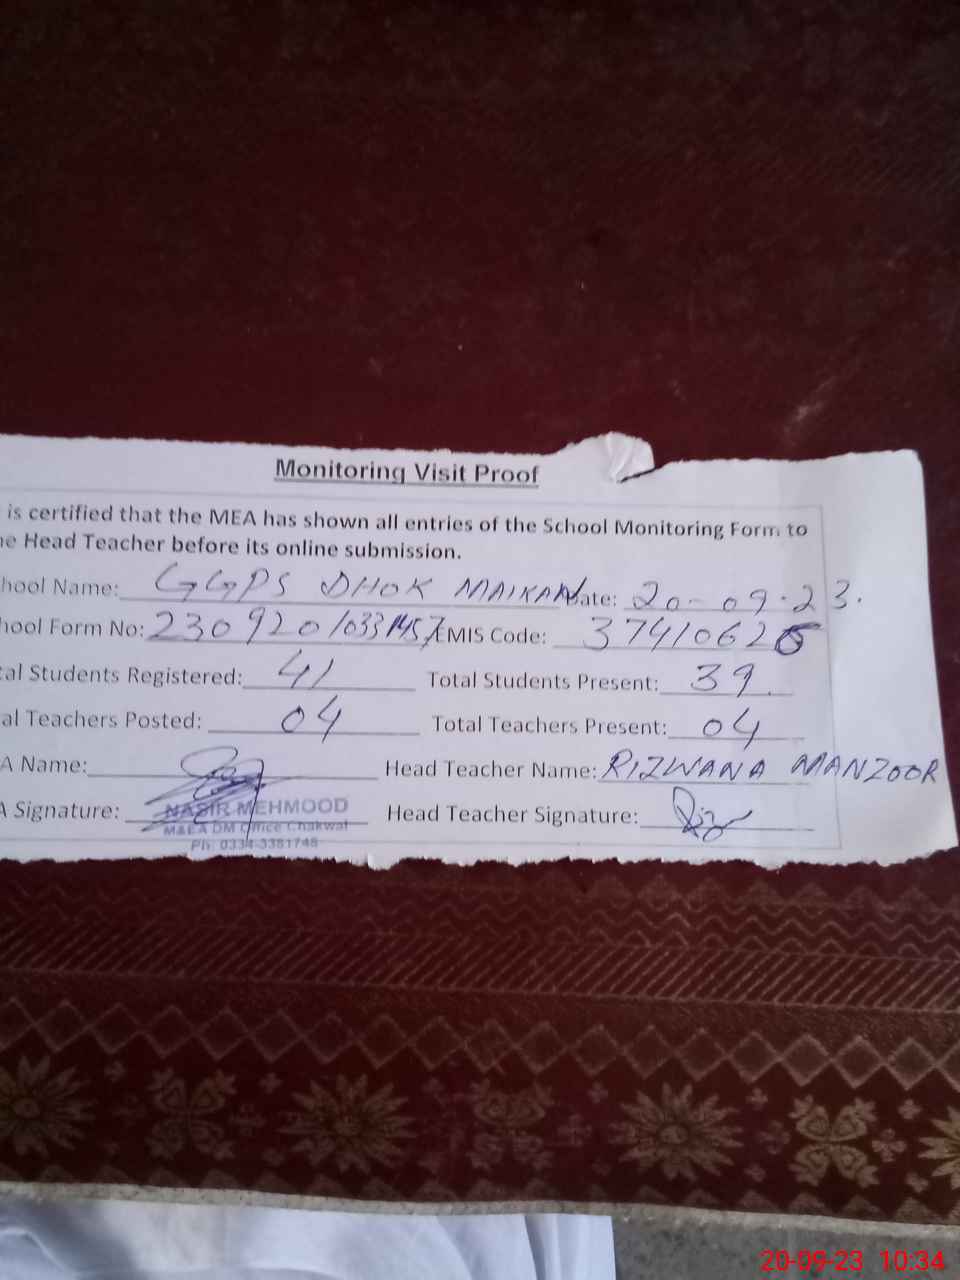 Monitoring Visit Proof
is certified that the MEA has shown all entries of the School Monitoring Form to
he Head Teacher before its online submission.
hool Name: GGPS DHOK MAIKAN Date: 20-09-23.
hool Form No: 2309201033457 EMIS Code: 37410626
tal Students Registered: 41 Total Students Present: 39
al Teachers Posted: 04 Total Teachers Present: 04
A Name: Head Teacher Name: RIZWANA MANZOOR
A Signature: Head Teacher Signature:
NASIR MEHMOOD
M&EA DM Office Chakwal
Ph: 0334-3381748
20-09-23 10:34